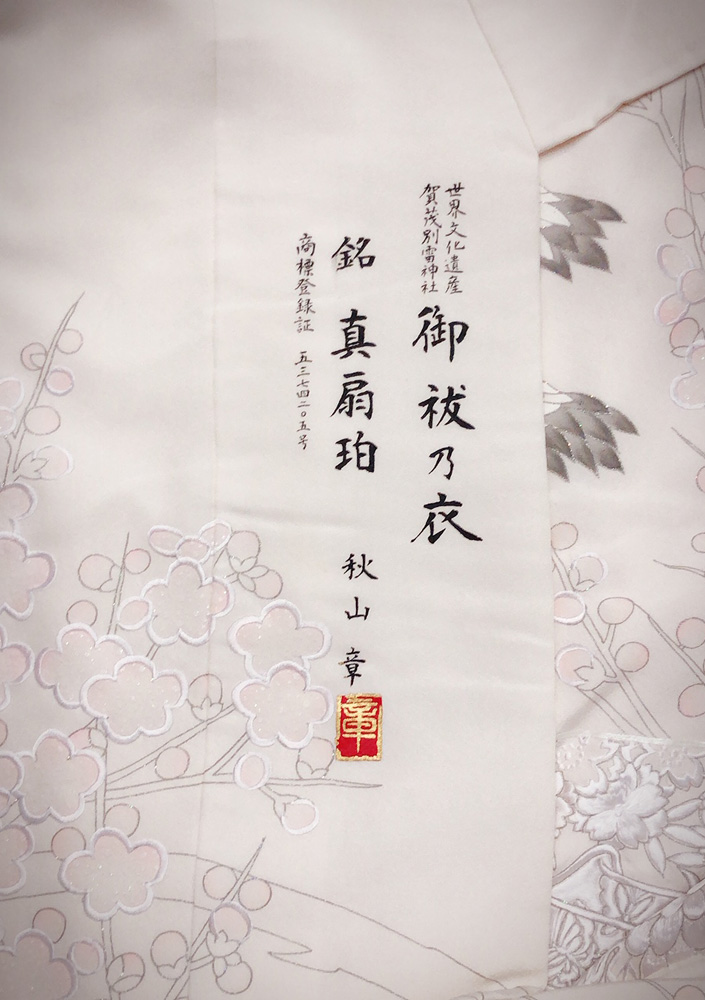 世界文化遺産
賀茂別雷神社
御祓乃衣
銘 真扇珀 秋山 章
章
商標登録証 五三七四二〇五号